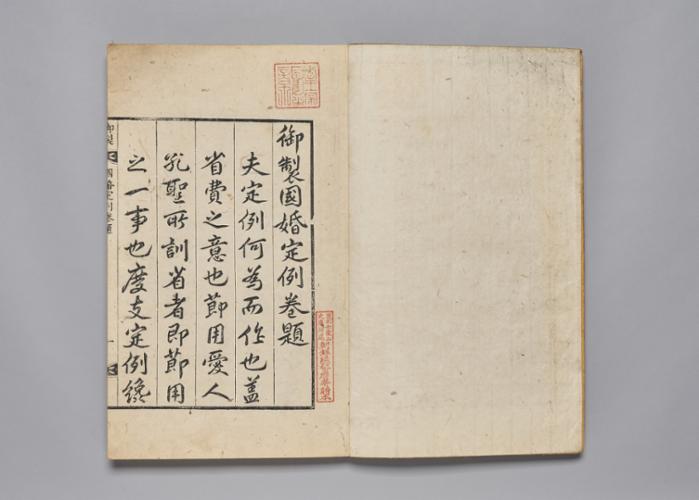 御製國婚定例卷題
夫定例何為而作也蓋
省費之意也節用愛人
孔聖所訓省者即節用
之一事也度支定例纔
御製
國婚定例卷題
一